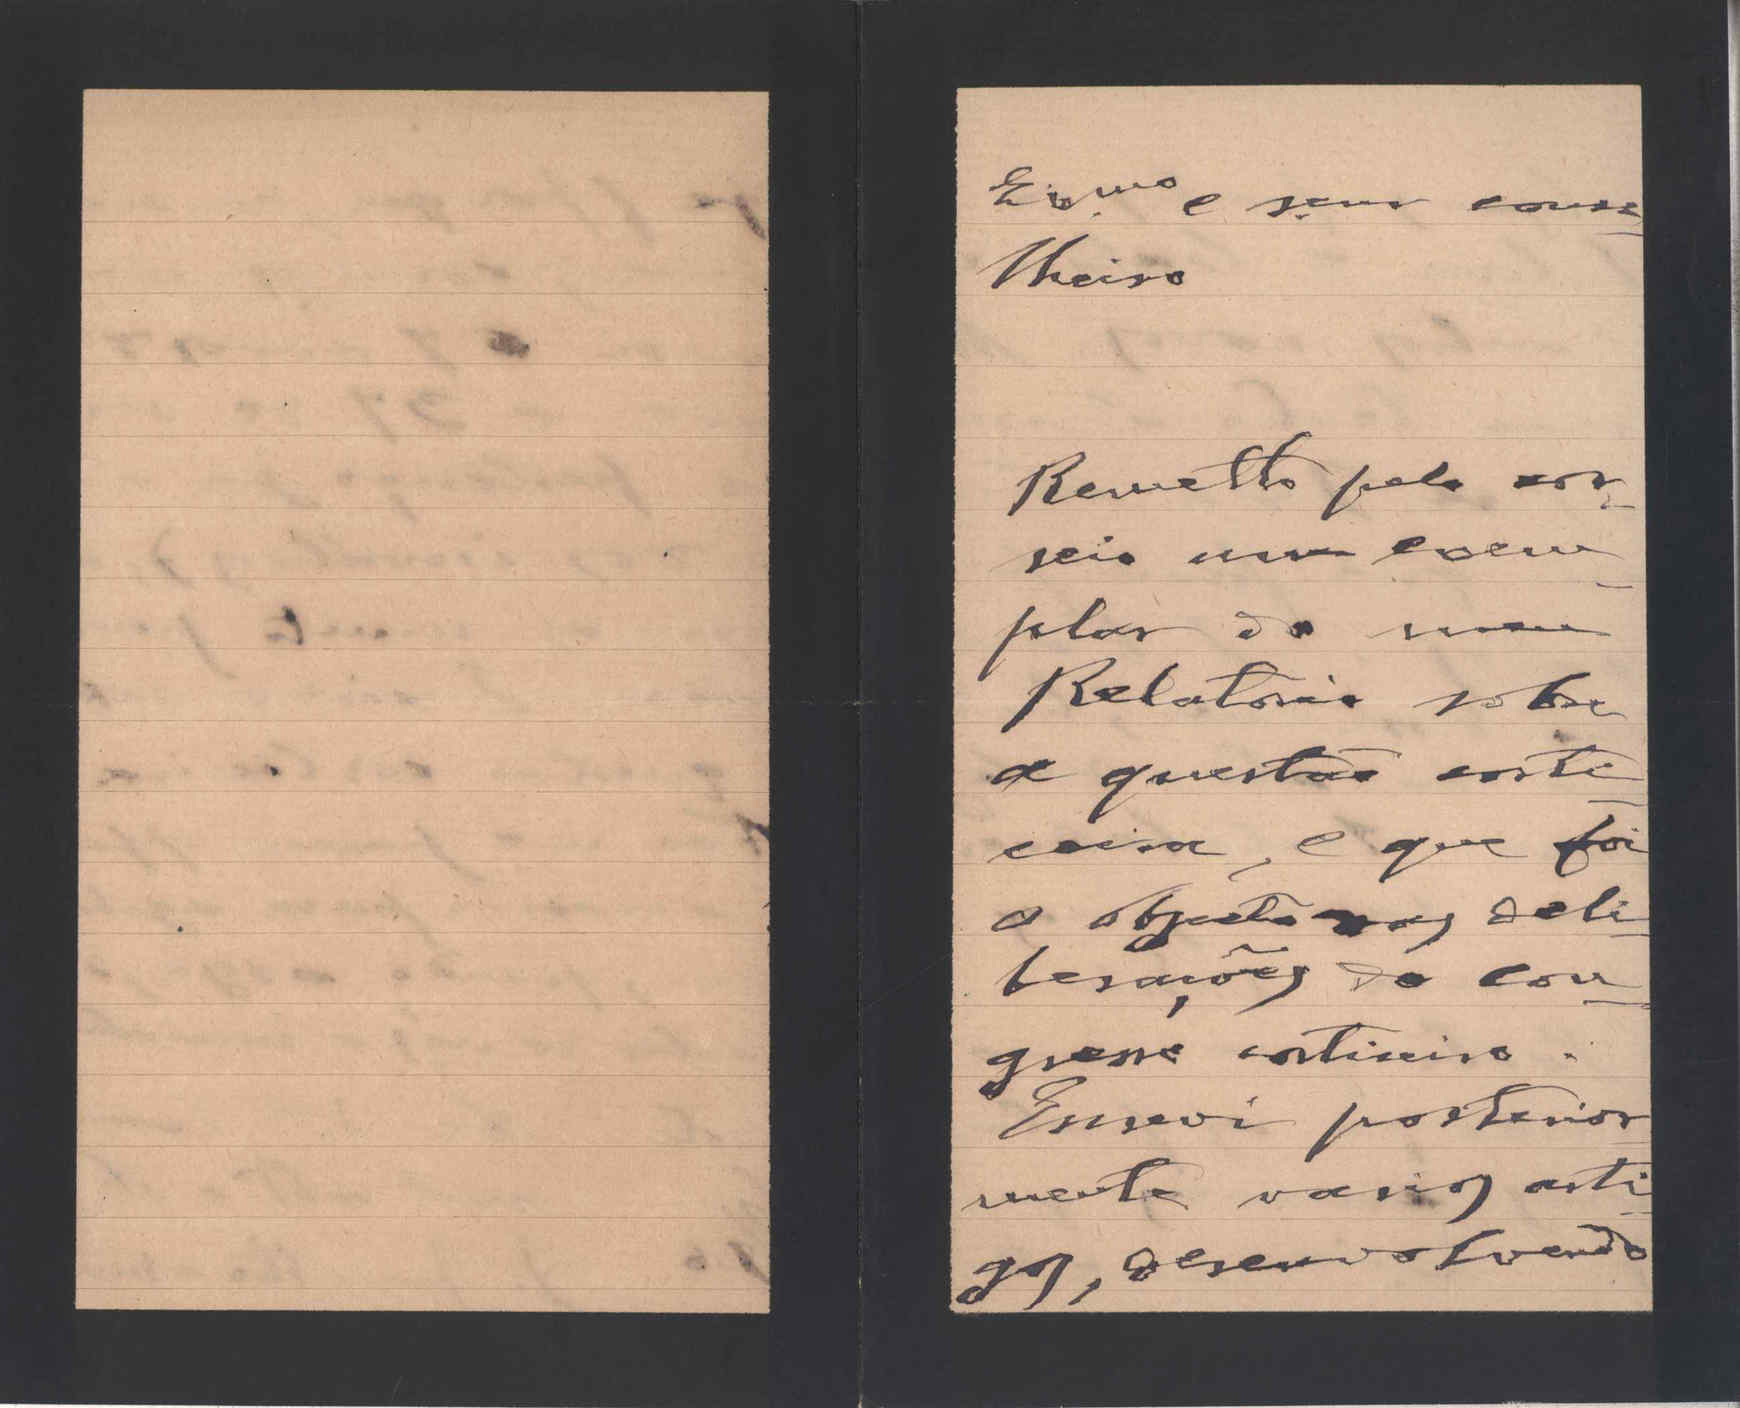 Ex.mo e snr conse-
lheiro
Remetto pelo cor-
reio um exem-
plar do meu
Relatorio sobre
a questão corti-
ceira, e que foi
o objecto nas deli-
berações do con-
gresso corticeiro.
Escrevi posterior
mente varios arti-
gos, desenvolvendo